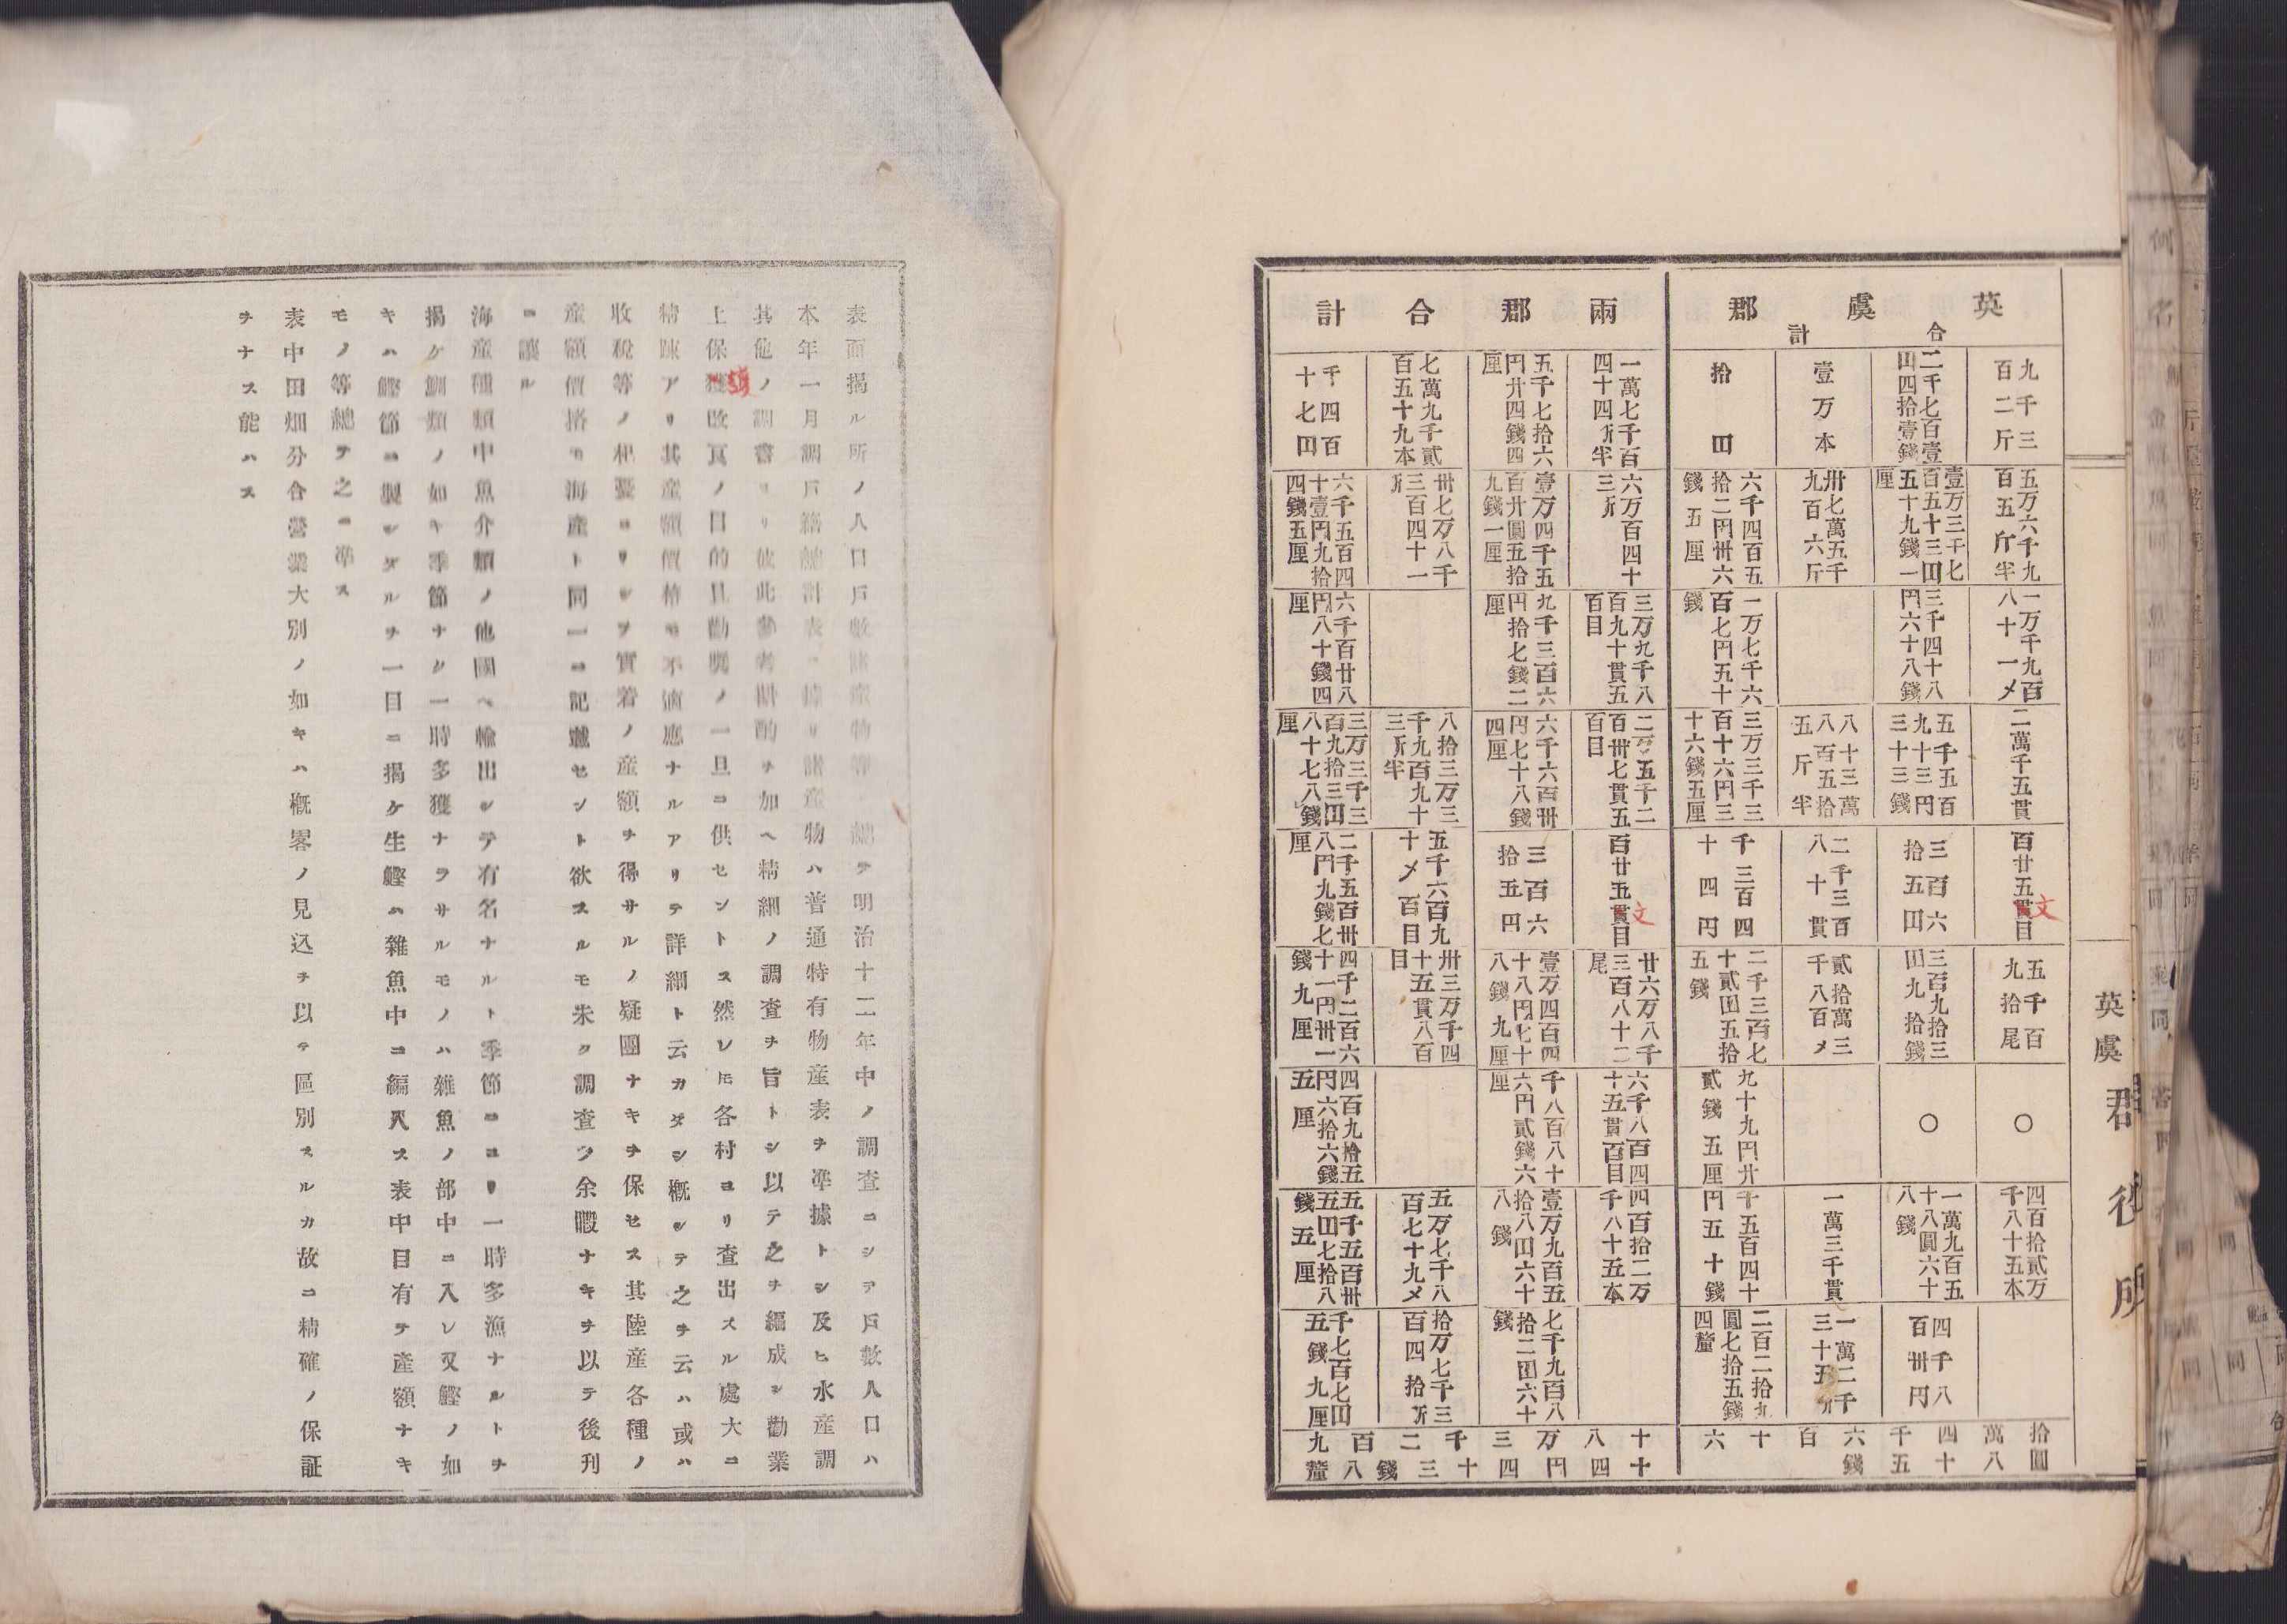 英虞郡
合計
九千三百二斤
二千七百壹田四拾壹錢
壹万本
拾田
五万六千九百五斤半
壹万三千七百五十三田五十九錢一厘
卅七萬五千九百六斤
六千四百五拾二円卅六錢五厘
一万千九百八十一〆
三千四十八円六十八錢
一万七千六百七円五十錢
二萬千五貫
五千五百九十三円三十三錢
八十三萬八百五拾五斤半
三万三千三百十六円三十六錢五厘
百廿五貫目
文
三百六拾五田
二千三百八十貫
千三百四十四円
五千百九拾尾
三百九拾三田九拾錢
貳拾萬三千八百〆
二千三百七十貳田五拾五錢
○
○
九十九円廿貳錢五厘
四百拾貳万千八十五本
一萬九百五十八圓六十八錢
一萬三千貫
千五百四十円五十錢
四千八百卅円
一萬二千三十五斤
二百二拾九圓七拾五錢四釐
拾萬四千六百十六
圓八十五錢
兩郡合計
一萬七千百四十四斤半
五千七拾六円廿四錢四厘
七萬九千貳百五十九本
千四百十七田
六万百四十三斤
壹万四千五百廿圓五拾九錢一厘
卅七万八千三百四十一斤
六千五百四十壹円九拾四錢五厘
三万九千八百九十貫五百目
九千三百六円拾七錢二厘
六千百廿八円八十錢四厘
二万五千二百卅七貫五百目
六千六百卅円七十八錢四厘
八拾三万三千九百九十三斤半
三万三千三百九拾三田八十七八錢厘
百廿五貫目
文
三百六拾五円
五千六百九十〆百目
二千五百卅八円九錢七厘
廿六万八千三百八十二尾
壹万四百四十八円七十八錢九厘
卅三万千四十五貫八百目
四千二百六十一円卅一錢九厘
六千八百四十五貫百目
千八百八十六円貳錢六厘
四百九拾五円六拾六錢五厘
四百拾二万千八十五本
壹万九百五拾八田六十八錢
五万七千八百七十九〆
五千五百卅五田七拾八錢五厘
七千九百八拾二田六十錢
拾万七千三百四拾斤
千七百七田五錢九厘
十八万三千二百九
十四円四十三錢八釐
英虞郡役所
表面揭ル所ノ人口戶數諸產物等ハ總テ明治十二年中ノ調查ニシテ戶數人口ハ
本年一月調戶籍統計表ニ據リ諸產物ハ普通特有物產表ヲ準據トシ及ヒ水產調
其他ノ調書ヨリ彼此參考斟酌ヲ加ヘ精細ノ調查ヲ旨トシ以テ之ヲ編成シ勸業
上保護改良ノ目的且勸奬ノ一旦ニ供セントス然レ𪜈各村ヨリ查出スル處大ニ
精踈アリ其產額價格モ不適應ナルアリテ詳細ト云カタシ概シテ之ヲ云ハ或ハ
收稅等ノ杞憂ヨリシテ實着ノ產額ヲ得サルノ疑團ナキヲ保セス其陸產各種ノ
產額價格モ海產ト同一ニ記載セント欲スルモ未タ調查ノ余暇ナキヲ以テ後刊
ニ讓ル
海產種類中魚介類ノ他國ヘ輸出シテ有名ナルト季節ニヨリ一時多漁ナルトヲ
揭ケ鯛類ノ如キ季節ナク一時多獲ナラサルモノハ雜魚ノ部中ニ入レ又鰹ノ如
キハ鰹節ニ製シタルヲ一目ニ揭ケ生鰹ハ雜魚中ニ編入ス表中目有テ產額ナキ
モノ等總テ之ニ準ス
表中田畑分合營業大別ノ如キハ概畧ノ見込ヲ以テ區別スルカ故ニ精確ノ保証
ヲナス能ハス